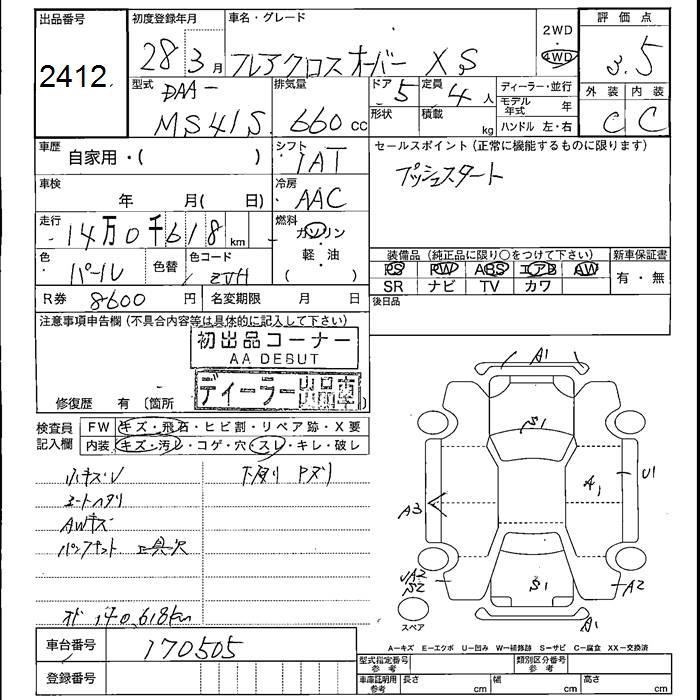 出品番号
2412
初度登録年月
28 3月
車名・グレード
フレアクロスオーバー XS
2WD
4WD
評価点
3.5
型式
DAA-
MS41S
排気量
660 cc
ドア 5
定員 4人
形状
積載 kg
ディーラー・並行
モデル年式 年
ハンドル 左・右
外装 内装
C C
車歴
自家用・( )
シフト
IAT
セールスポイント (正常に機能するものに限ります)
プッシュスタート
車検
年 月( 日)
冷房
AAC
走行
14万0千618km
燃料
ガソリン
・軽・油
( )
色
パール
色替
色コード
ZVH
装備品 (純正品に限り○をつけて下さい)
新車保証書
PS PW ABS エアB AW
有・無
SR ナビ TV カワ
R券 8600円
名変期限 月 日
後日品
注意事項申告欄 (不具合内容等は具体的に記入して下さい)
初出品コーナー
AA DEBUT
ディーラー出品車
修復歴 有 〔箇所
検査員記入欄
FW キズ・飛石・ヒビ割・リペア跡・X要
内装 キズ・汚レ・コゲ・穴・スレ・キレ・破レ
小キズU
シートヘタリ
AWキズ
パンクキット 工具欠
下廻り サビ
オド 140,618km
A1
S1
U1
A1
A3
S1
A2
S2
A2
A1
スペア
A-キズ E-エクボ U-凹み W-補修跡 S-サビ C-腐食 XX-交換済
車台番号
170505
登録番号
型式指定番号
参考
類別区分番号
参考
車庫証明用
参考
長さ cm
幅 cm
高さ cm